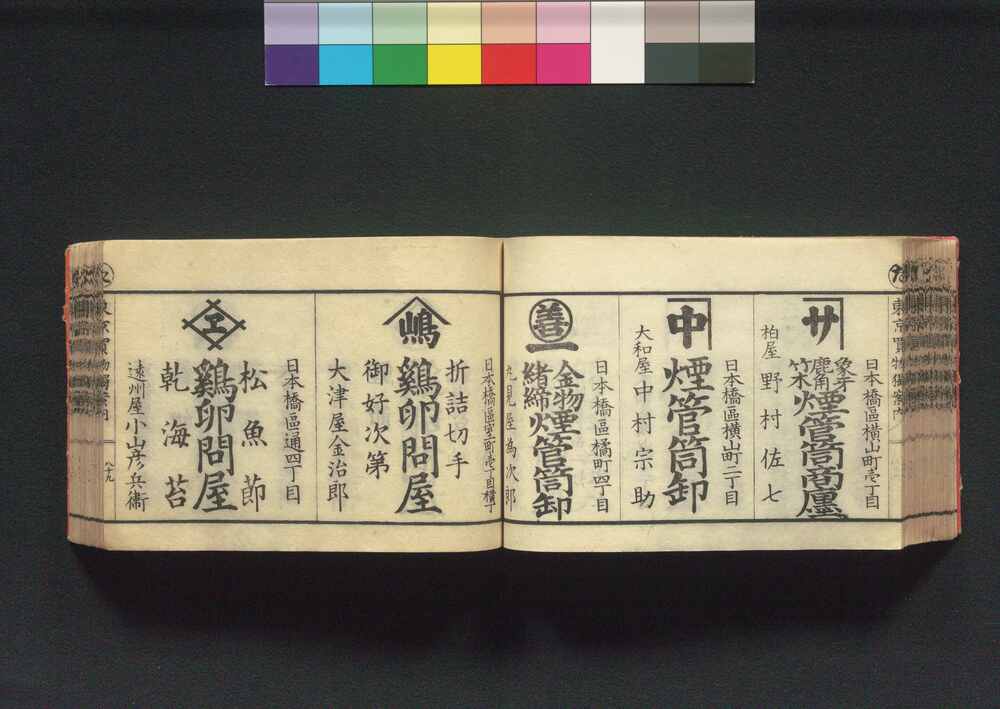 東京買物獨案内
サ
日本橋區横山町壱丁目
象牙
鹿角
竹木
煙管筒商廛
柏屋 野村佐七
中
日本橋區横山町二丁目
煙管筒卸
大和屋 中村宗助
善一
日本橋區橘町四丁目
金物
緒締
煙管筒卸
丸見屋為次郎
日本橋區室町壱丁目横丁
嶋
折詰切手
鷄卵問屋
御好次第
大津屋金治郎
日本橋區通四丁目
エ
松魚節
鷄卵問屋
乾海苔
遠州屋小山彦兵衛
東京買物獨案内
八十九